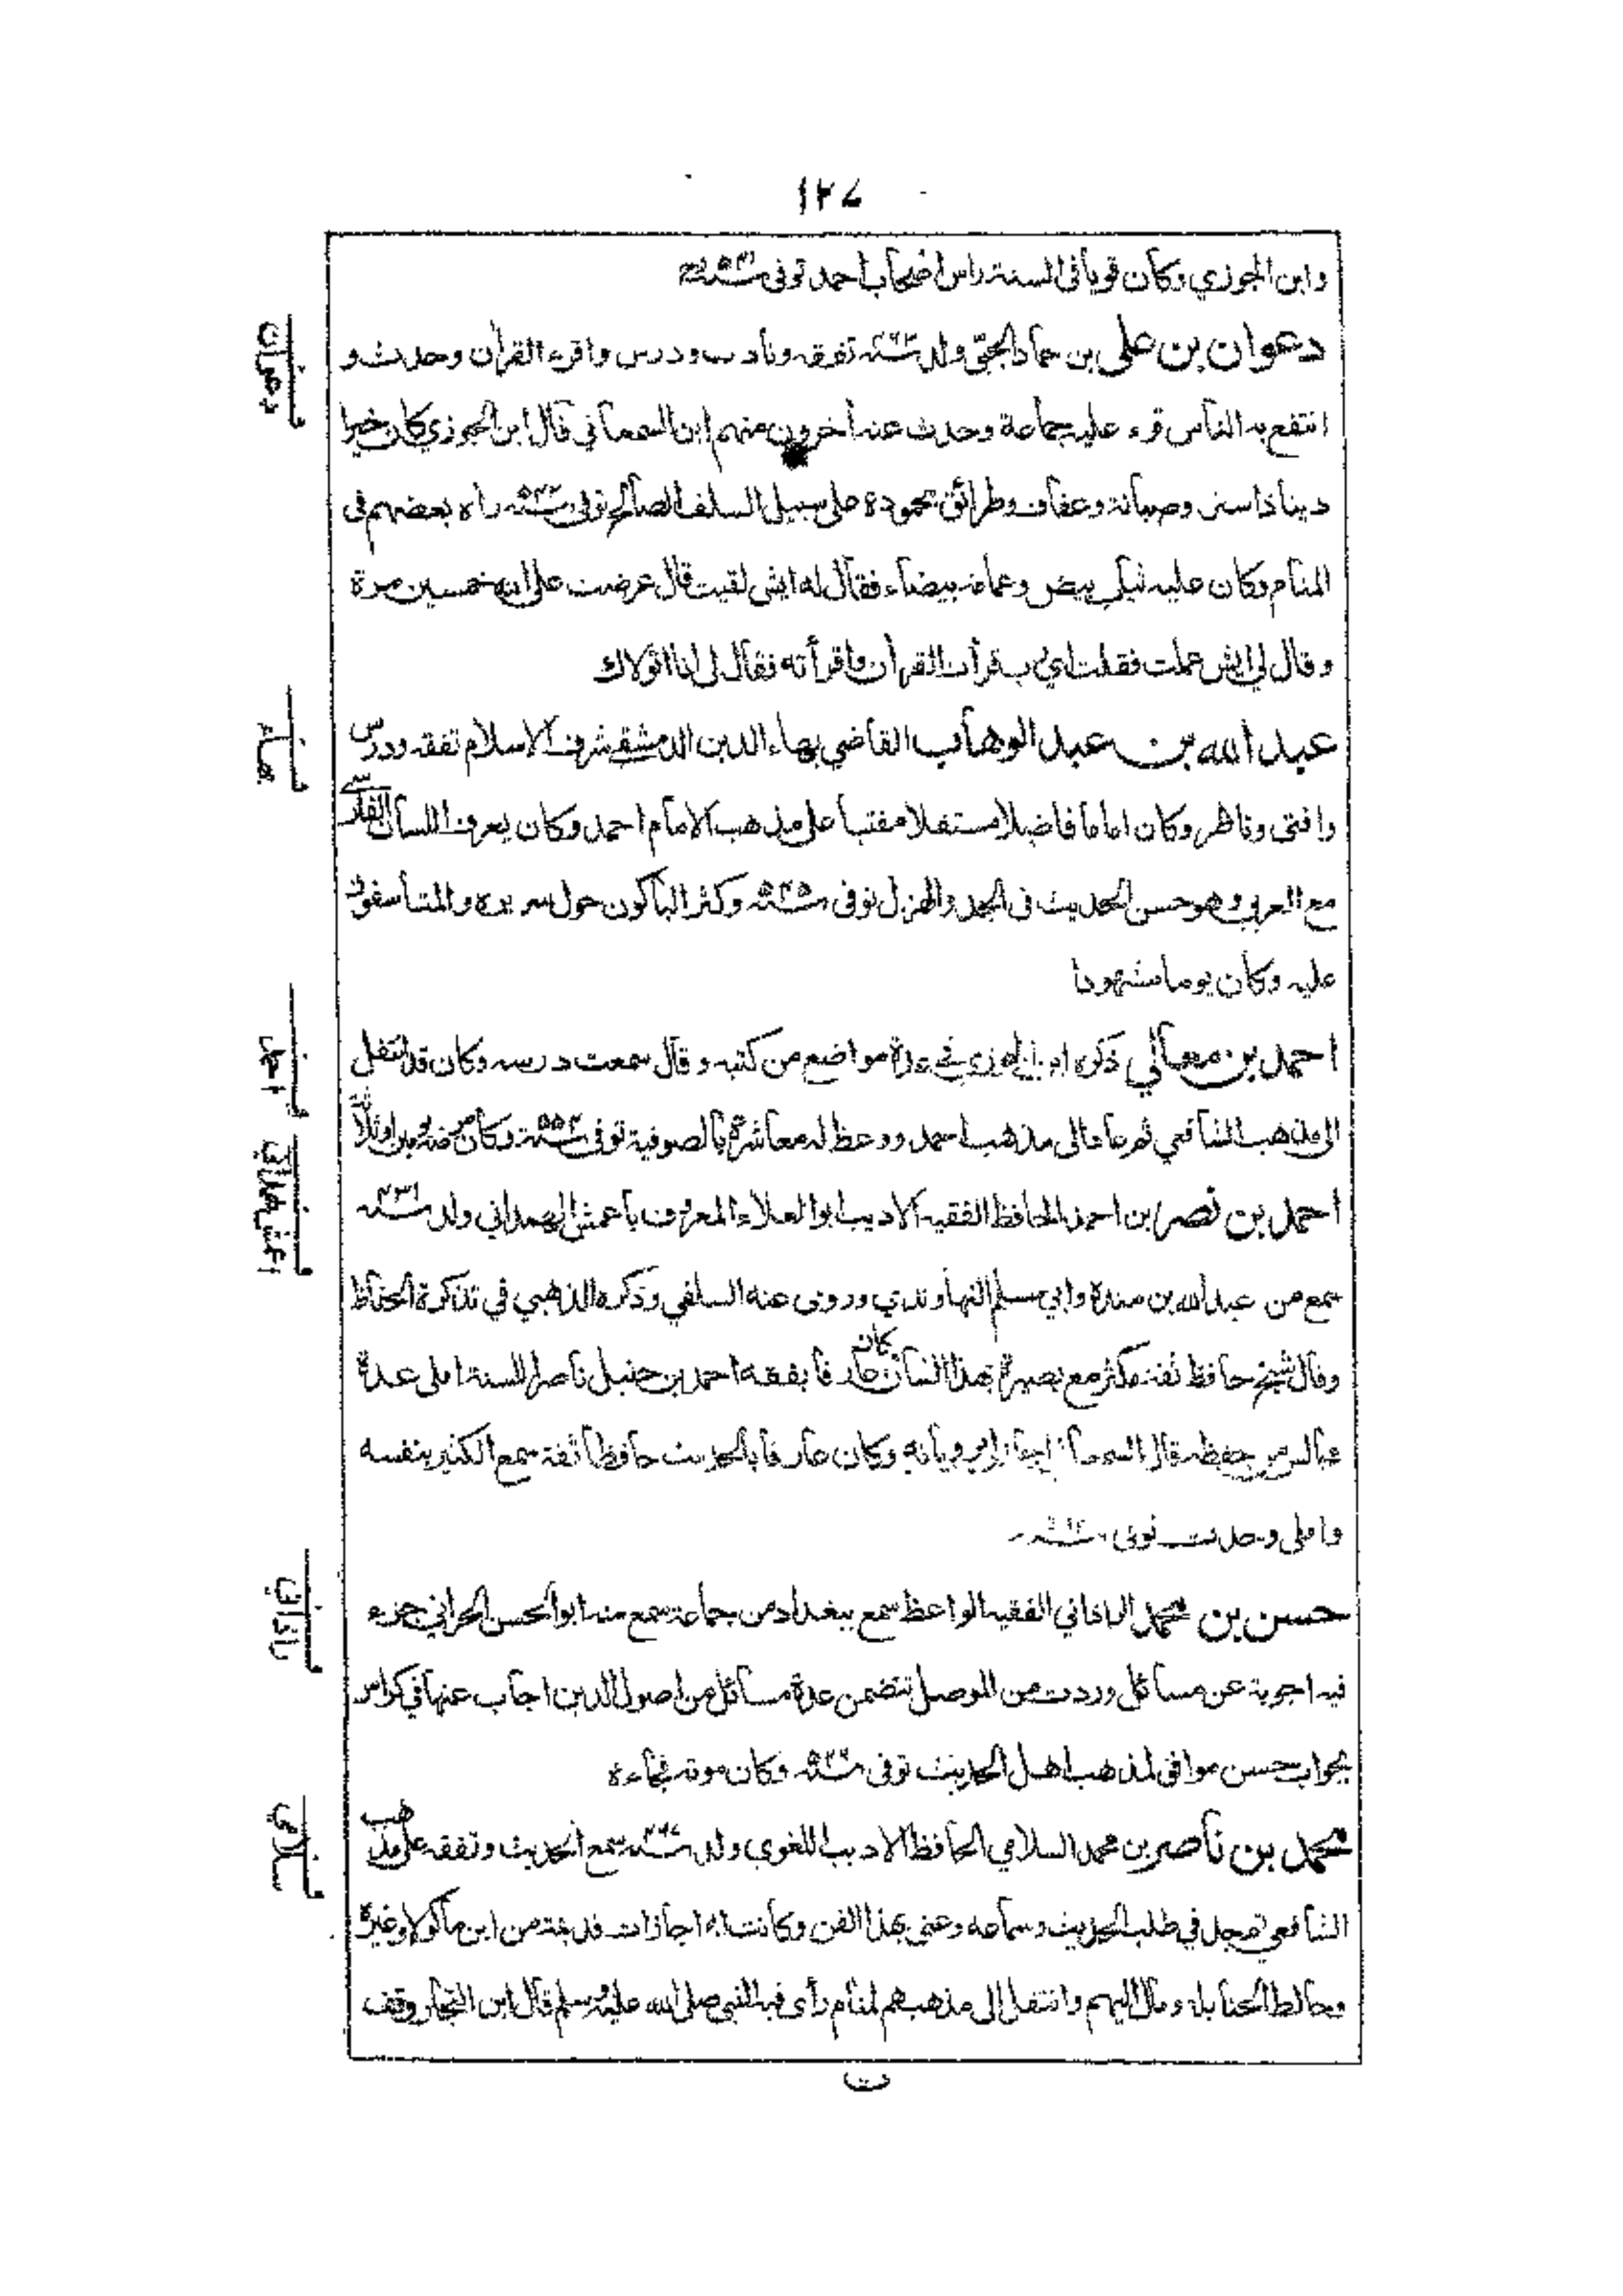 ١٢٧
وابن الجوزي وكان قويا فى السنة راس اصحاب احمد توفى
دعوان بن على بن حماد الجبّى ولد سنة تفقه وتأدب ودرس واقرء القرأن وحدث و
انتفع به الناس قرء عليه جماعة وحدث عنه أخرون منهم ابن السمعانى قال ابن الجوزي كان خيرا
دينا ذا ستر وصيانة وعفاف وطرائق محمودة على سبيل السلف الصالح توفى سنة رأه بعضهم فى
المنام وكان عليه ثياب بيض وعمامة بيضاء فقال له ايش لقيت قال عرضت على الله خمسين مرة
وقال لى ايش عملت فقلت اي رب قرأت القرأن واقرأته فقال لى انا اتولاك
عبد الله بن عبد الوهاب القاضي بهاء الدين الدمشقي شرف الاسلام تفقه ودرس
وافتى وناظر وكان اماما فاضلا مستقلا مفتيا على مذهب الامام احمد وكان يعرف اللسان الفارسي
مع العربي وهو حسن الحديث فى الجد والهزل توفى سنة وكثر الباكون حول سريره والمتأسفون
عليه وكان يوما مشهودا
احمد بن معالي ذكره ابن الجوزي في عدة مواضع من كتبه وقال سمعت درسه وكان قد انتقل
الى مذهب الشافعي ثم عاد الى مذهب احمد ووعظ له معاشرة بالصوفية توفى سنة وكان مرضه
احمد بن نصر بن احمد الحافظ الفقيه الاديب ابو العلاء المعروف باعمش الهمدانى ولد سنة
سمع من عبد الله بن مندة وابي مسلم النهاوندي وروى عنه السلفي وذكره الذهبي في تذكرة الحفاظ
وقال شيخ حافظ ثقة مكثر مع بصيرة بهذا الشان كان عارفا بفقه احمد بن حنبل ناصرا للسنة املى عدة
مجالس من حفظه قال السمعانى اجازلى مروياته وكان عارفا بالحديث حافظا ثقة سمع الكثير بنفسه
واملى وحدث توفى سنة
حسن بن محمد الراذاني الفقيه الواعظ سمع ببغداد من جماعة سمع منه ابو الحسن الحراني جزء
فيه اجوبة عن مسائل وردت من الموصل تتضمن عدة مسائل من اصول الدين اجاب عنها في كراس
بجواب حسن موافق لمذهب اهل الحديث توفى سنة وكان موته فجاءة
محمد بن ناصر بن محمد السلامي الحافظ الاديب اللغوي ولد سنة سمع الحديث وتفقه على مذهب
الشافعي وجل في طلب الحديث وسماعه وعنى بهذا الفن وكانت له اجازات قديمة من ابن ماكولا وغيره
وخالط الحنابلة ومال اليهم وانتقل الى مذهبهم لمنام رأى فيه النبي صلى الله عليه وسلم قال ابن النجار وقف
دعوان
بهاء
احمد
اعمش همداني
راذاني
سلامي